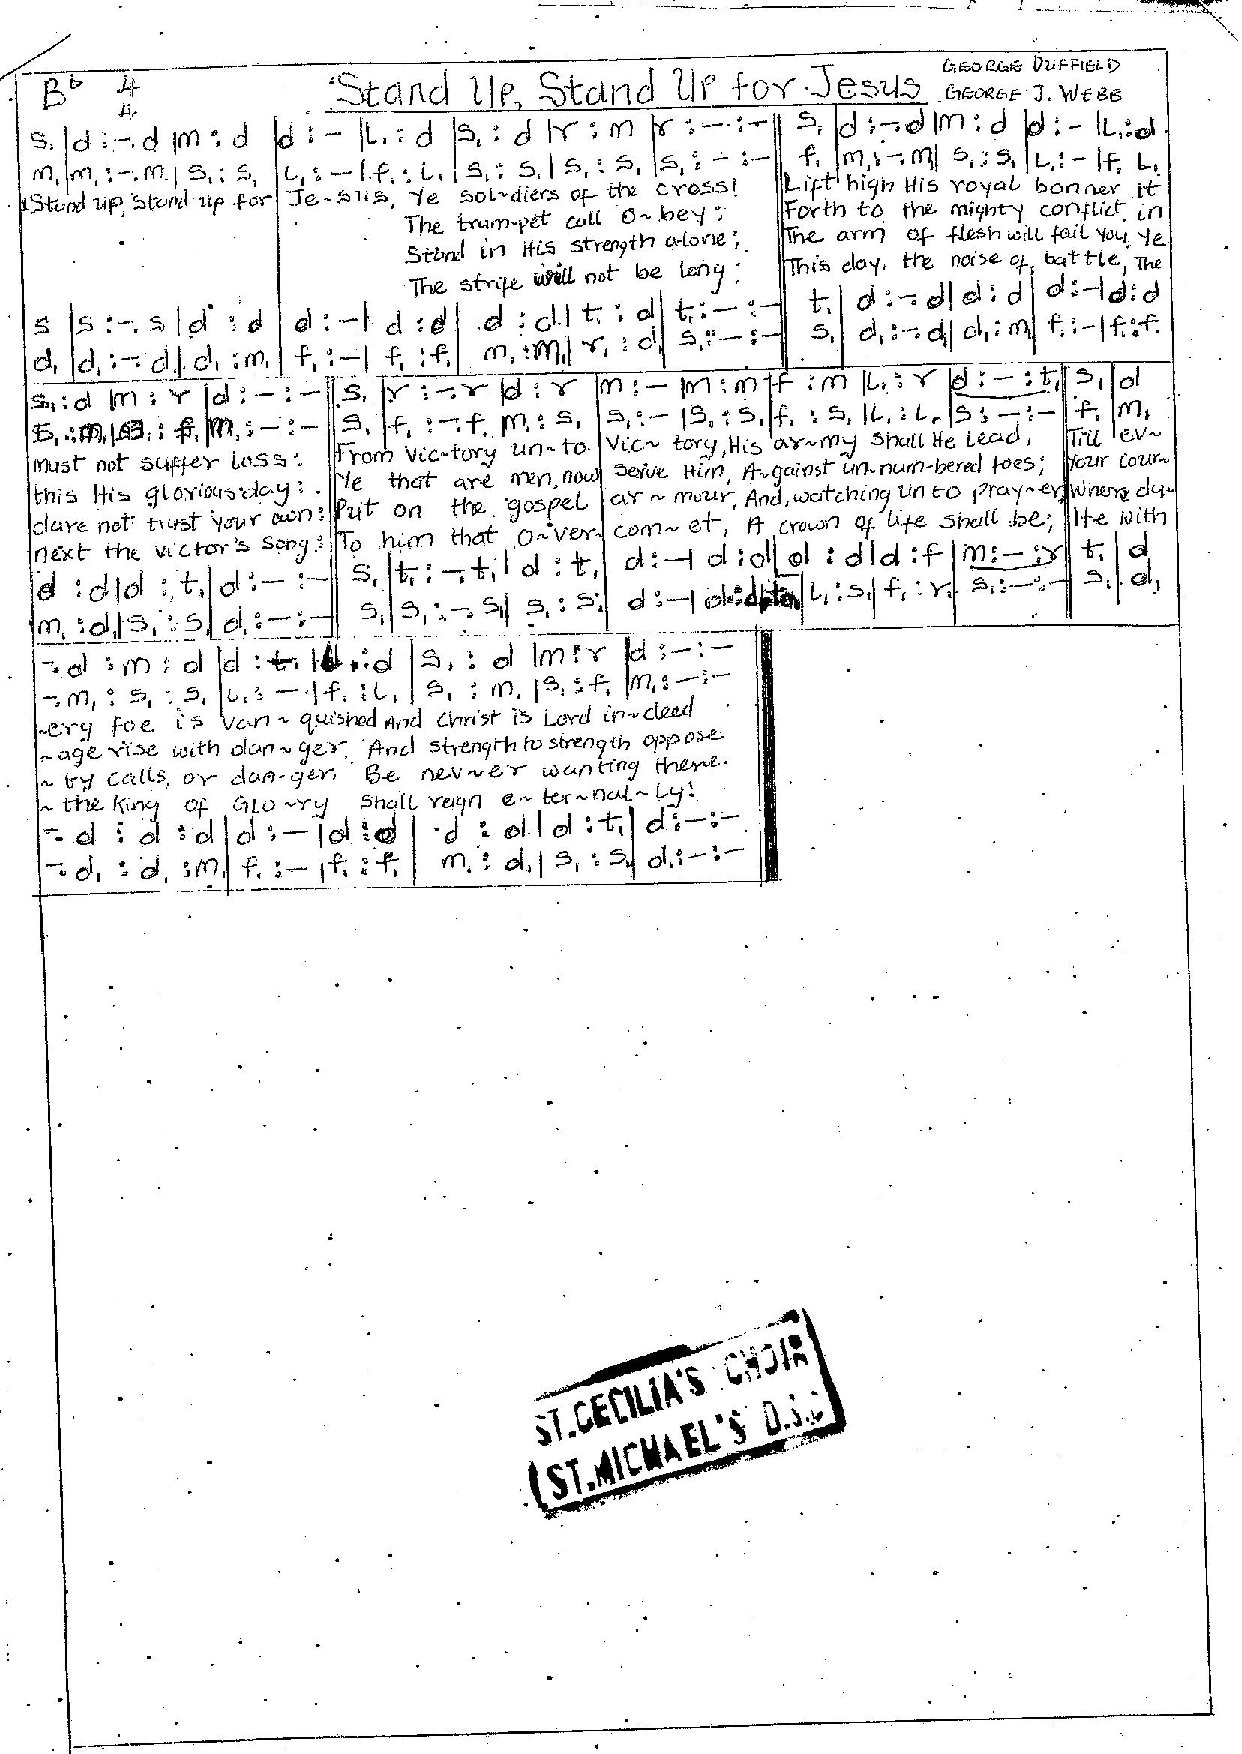 B♭ 4 Stand Up, Stand Up for Jesus GEORGE DUFFIELD
4 GEORGE J. WEBB
s, |d :-. d |m : d |d : - |l, : d |s, : d |r : m |r : - : - || s, |d :-. d |m : d |d : - |l, : d
m, |m, :-. m, |s, : s, |l, : - |f, : l, |s, : s, |s, : s, |s, : - : - || f, |m, :-. m |s, : s, |l, : - |f, l,
1 Stand up, Stand up for Je-sus, Ye sol~diers of the cross! Lift high His royal banner it
The trum-pet call O~bey: Forth to the mighty conflict, in
Stand in His strength alone; The arm of flesh will fail you, Ye
The strife will not be long; This day, the noise of battle, The
s |s :-. s |d : d |d : - |d : d |d : d |t, : d |t, : - : - || t, |d :-. d |d : d |d : - |d : d
d, |d, :-. d, |d, : m, |f, : - |f, : f, |m, : m, |r, : d, |s, : - : - || s, |d, :-. d, |d, : m, |f, : - |f, : f,
s, : d |m : r |d : - : - || s, |r :-. r |d : r |m : - |m : m |f : m |l, : r |d : - : t, || s, |d
f, |m, : - : - || s, |f, :-. f, |m, : s, |s, : - |s, : s, |f, : s, |l, : l, |s, : - : - || f, |m,
must not suffer loss: From Vic~tory un~to Vic~tory, His ar~my shall He lead, Till ev~
this His glorious day: Ye that are men, now serve Him, A~gainst un~num-bered foes; Your cour~
dare not trust your own: Put on the gospel ar~mour, And, watching un to pray~er, Where du~
next the victor's song: To him that O~ver com~et, A crown of life shall be; He with
d : d |d : t, |d : - : - || s, |t, :-. t, |d : t, |d : - |d : d |d : d |d : f |m : - : r || t, |d
m, : d, |s, : s, |d, : - : - || s, |s, :-. s, |s, : s, |d : - |d : |l, : s, |f, : r, |s, : - : - || s, |d,
-. d : m : d |d : |l, : d |s, : d |m : r |d : - : -
-. m, : s, : s, |l, : - |f, : l, |s, : m, |s, : f, |m, : - : -
~ery foe is Van~quished And Christ is Lord in~deed
~age rise with dan~ger, And strength to strength oppose
~ty calls, or dan-ger, Be nev~er wanting there.
~ the King of Glo~ry Shall reign e~ter~nal~ly!
-. d : d : d |d : - |d : d |d : d |d : t, |d : - : -
-. d, : d, : m, |f, : - |f, : f, |m, : d, |s, : s, |d, : - : -
ST. CECILIA'S CHOIR
ST. MICHAEL'S D.S.C